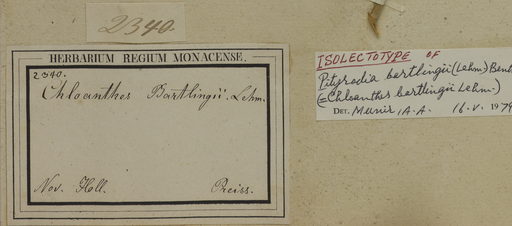 2340.
HERBARIUM REGIUM MONACENSE.
2340.
Chloanthes Bartlingii. Lehm.
Nov. Holl. Preiss.
ISOLECTOTYPE OF
Pityrodia bartlingii (Lehm.) Benth
(=Chloanthes bartlingii Lehm.)
DET. Munir, A.A. 16.V. 1979